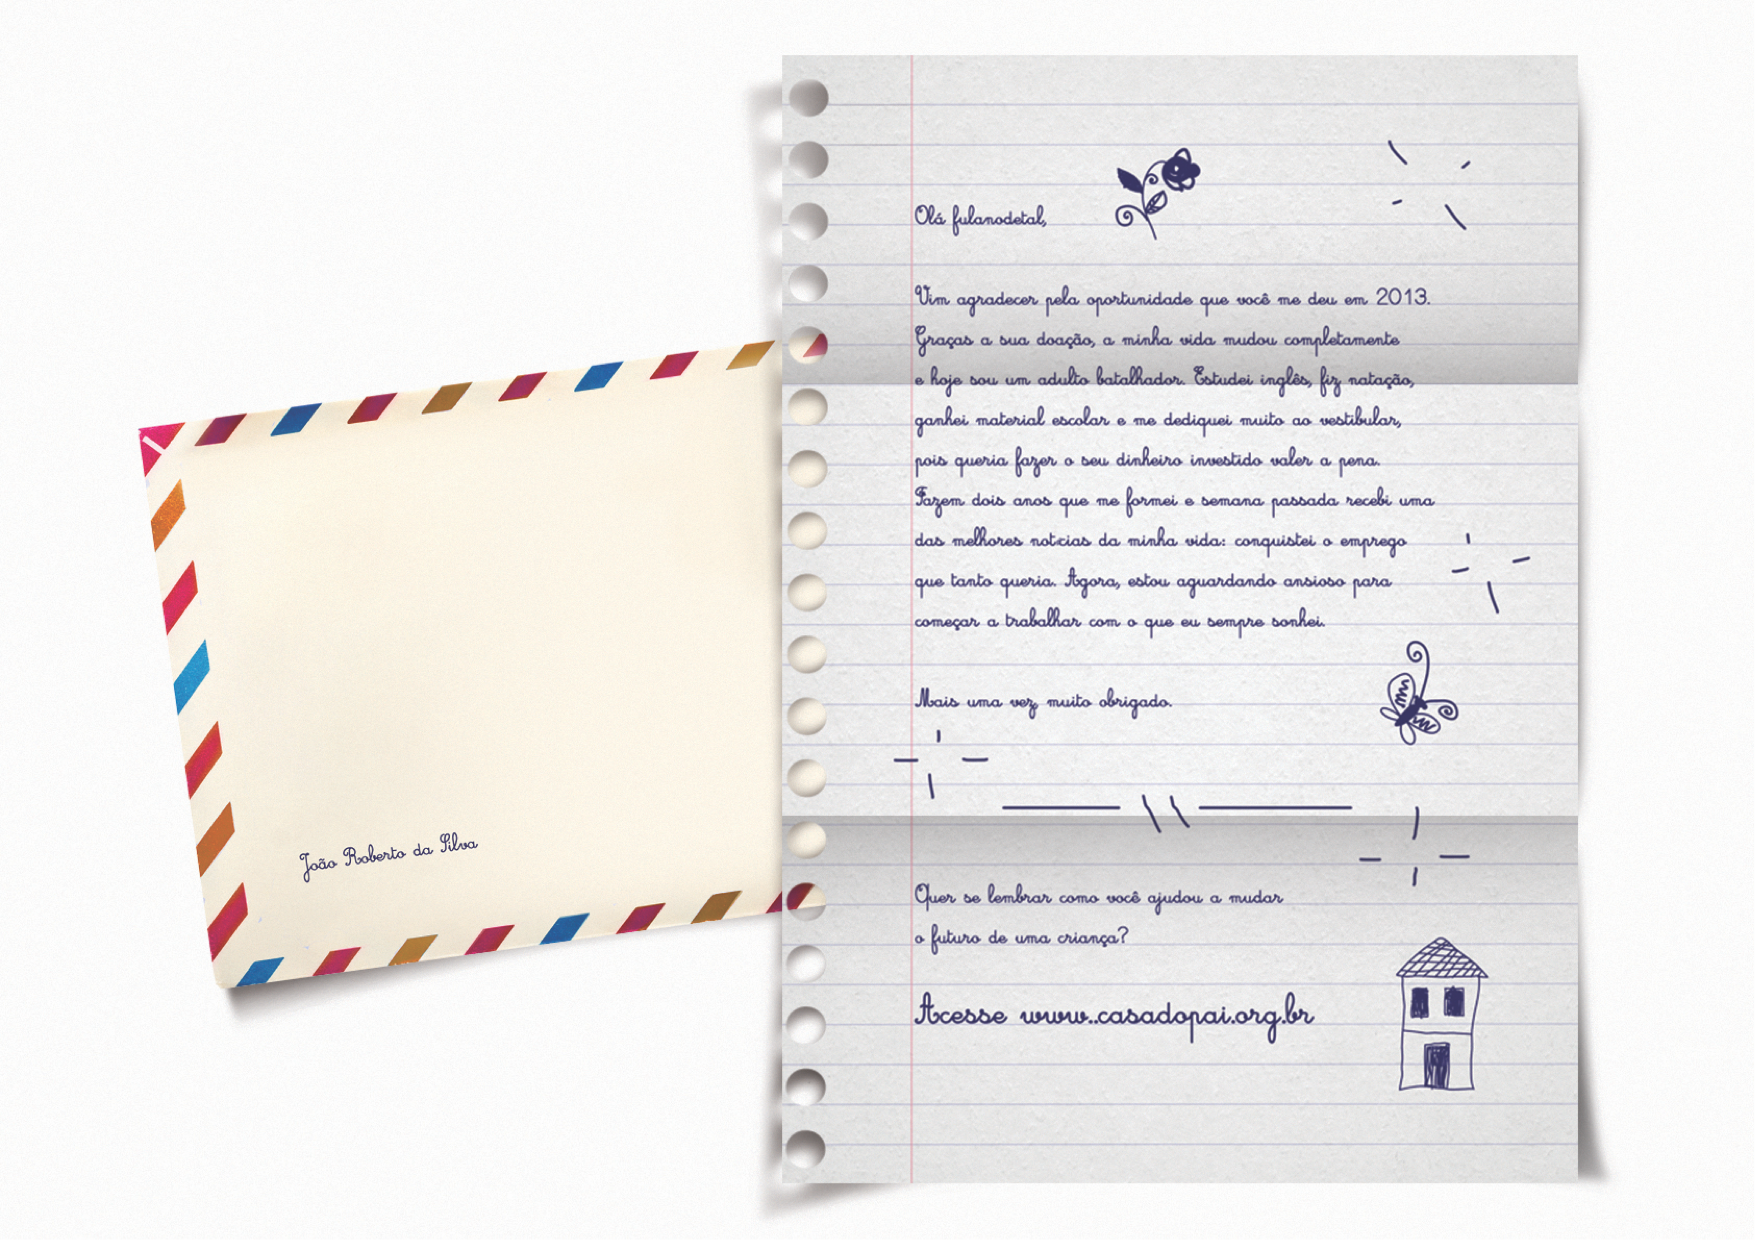 Olá fulanodetal,
Vim agradecer pela oportunidade que você me deu em 2013.
Graças a sua doação, a minha vida mudou completamente
e hoje sou um adulto batalhador. Estudei inglês, fiz natação,
ganhei material escolar e me dediquei muito ao vestibular,
pois queria fazer o seu dinheiro investido valer a pena.
Fazem dois anos que me formei e semana passada recebi uma
das melhores notcias da minha vida: conquistei o emprego
que tanto queria. Agora, estou aguardando ansioso para
começar a trabalhar com o que eu sempre sonhei.
Mais uma vez, muito obrigado.
Quer se lembrar como você ajudou a mudar
o futuro de uma criança?
Acesse www..casadopai.org.br
João Roberto da Silva